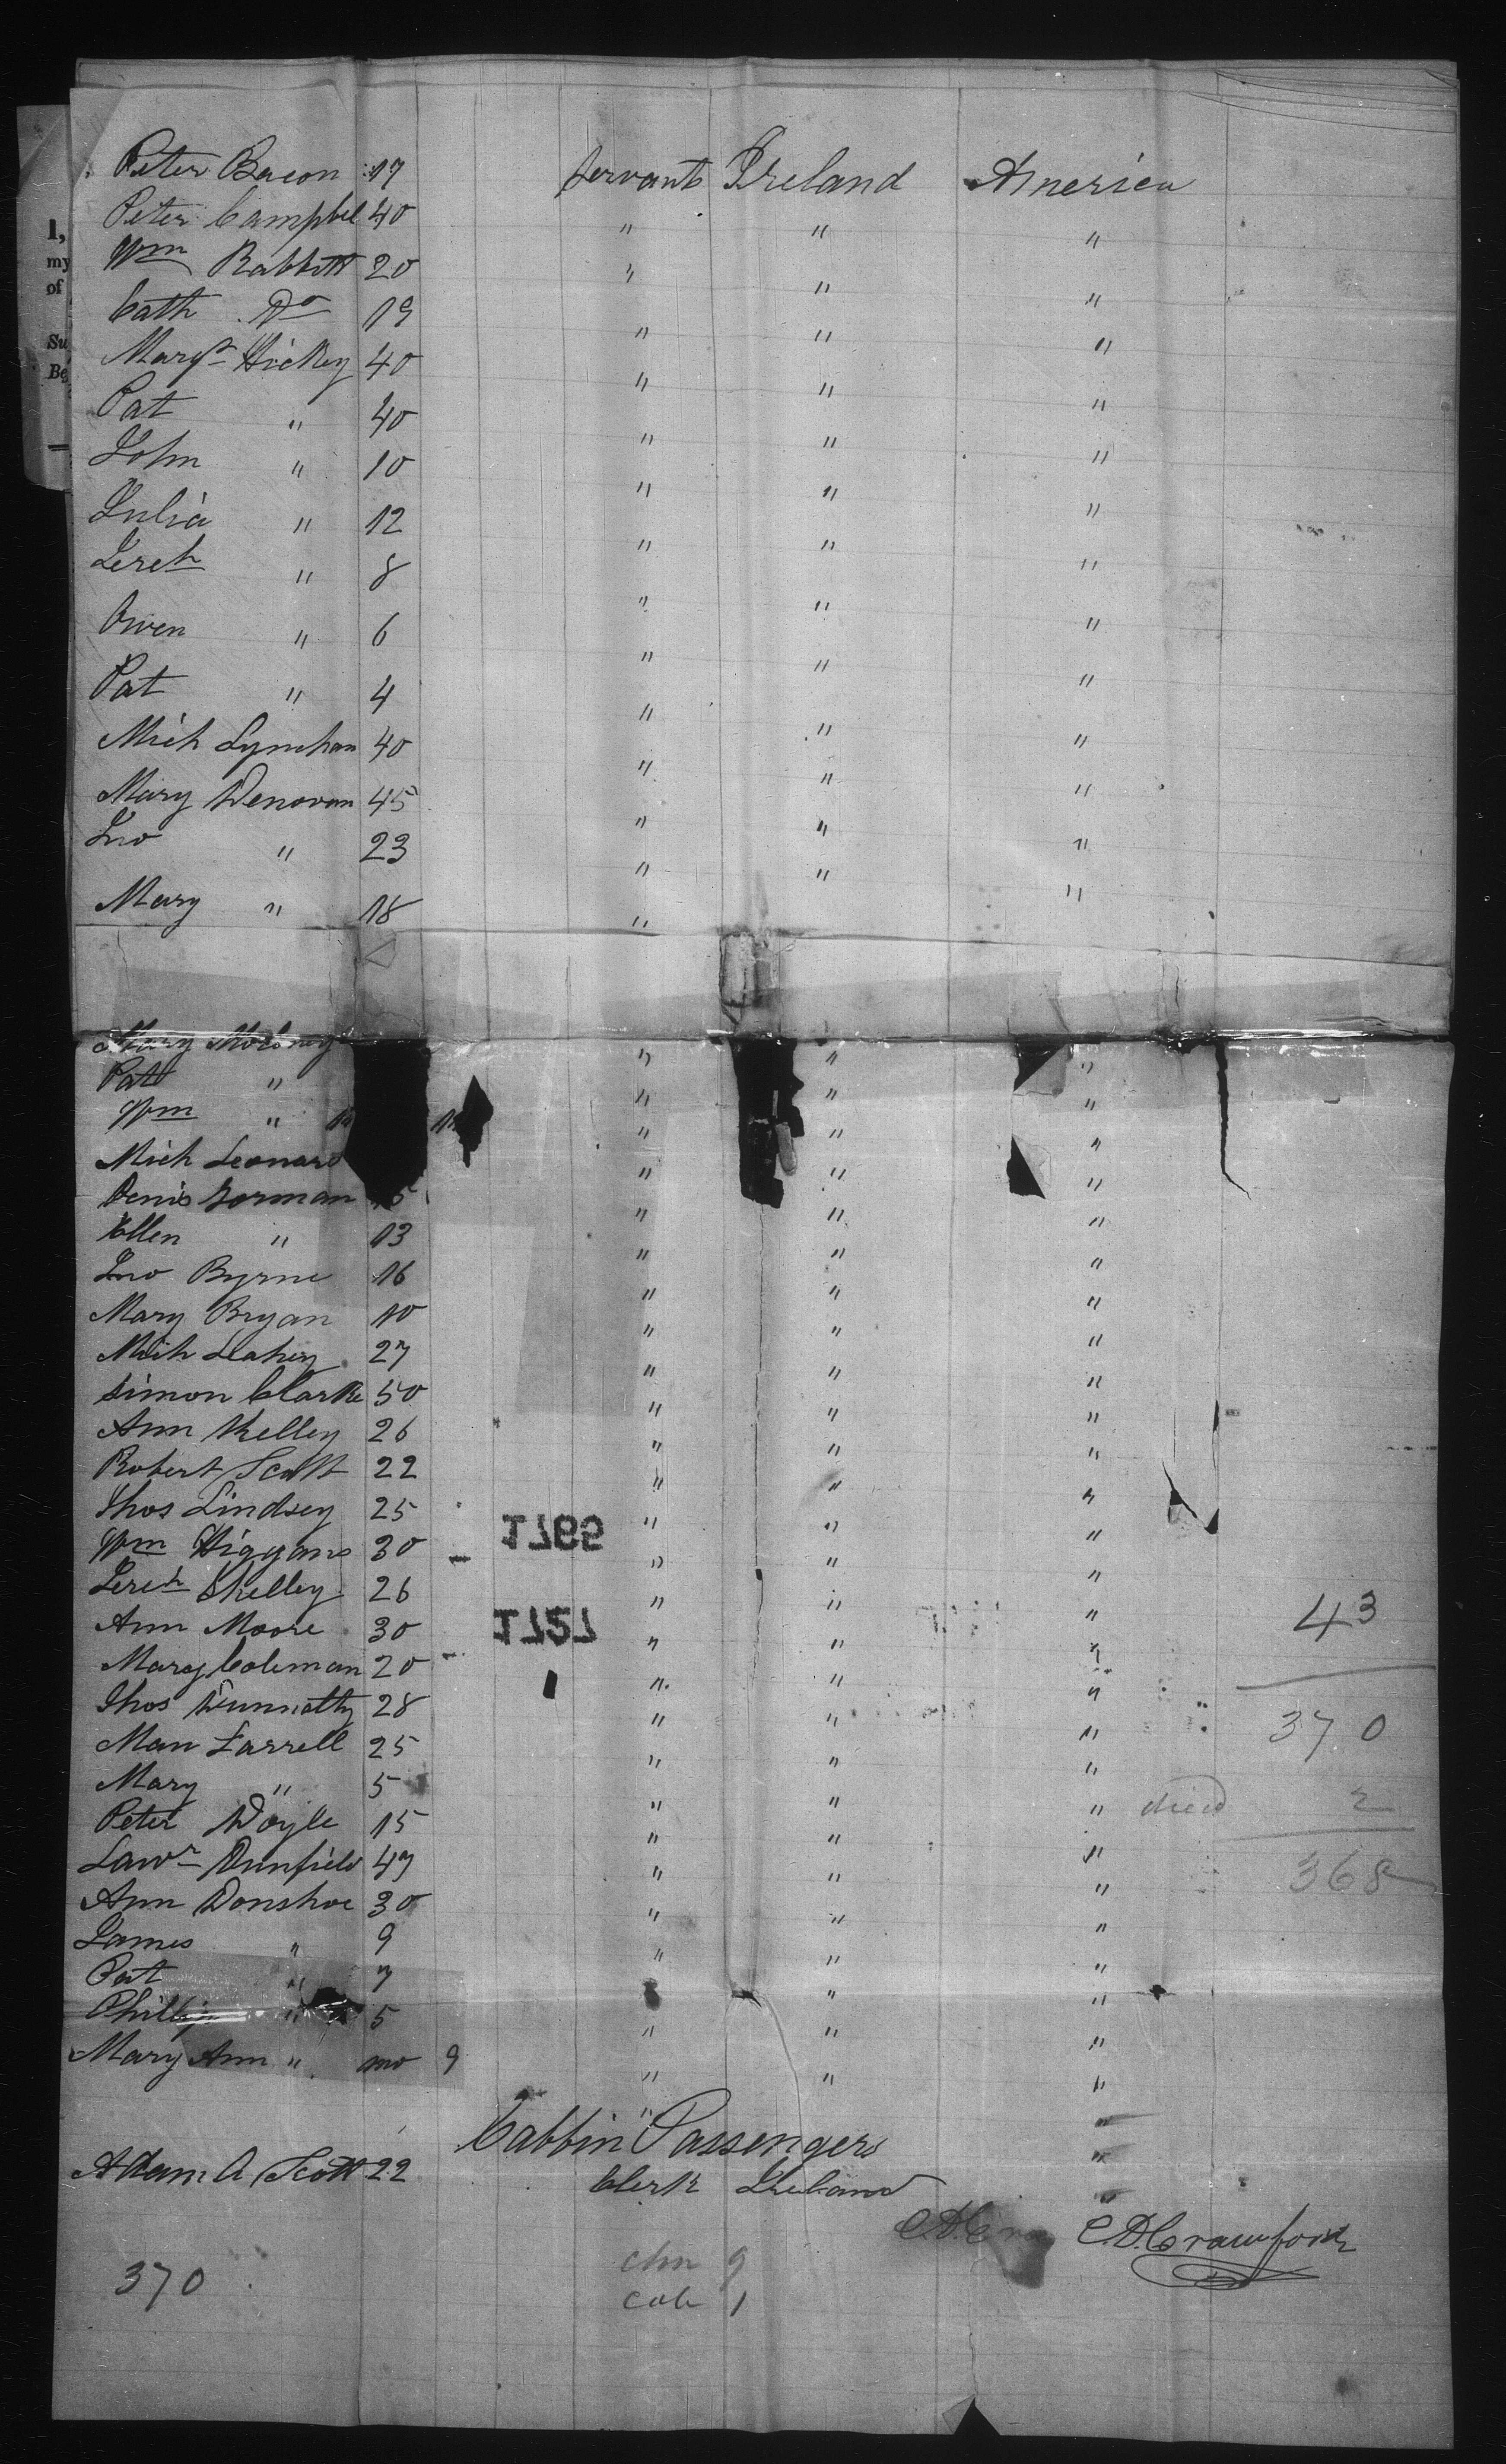 Peter Bacon 19 Servants Ireland America
Peter Campbel 40 " " "
Wm Rabbitt 20 " " "
Cath Do 19 " " "
Margt Hickey 40 " " "
Pat " 40 " " "
John " 10 " " "
Julia " 12 " " "
Jereh " 8 " " "
Owen " 6 " " "
Pat " 4 " " "
Mich Lynchan 40 " " "
Mary Denovan 45 " " "
Jno " 23 " " "
Mary " 18 " " "
Mary Moloney " " "
Pat " " " "
Wm " " " "
Mich Leonard " " "
Denis Gorman " " "
Ellen " 13 " " "
Jno Byrne 16 " " "
Mary Bryan 10 " " "
Mich Leahey 27 " " "
Simon Clarke 50 " " "
Ann Kelley 26 " " "
Robert Scott 22 " " "
Thos Lindsey 25 " " "
Wm Higgans 30 1765 " " "
Jereh Skelley 26 " " "
Ann Moore 30 1727 " " " 43
Mary Coleman 20 " " "
Thos Dunnatty 28 " " "
Man Farrell 25 " " " 370
Mary " 5 " " "
Peter Doyle 15 " " " died 2
Lawr Dunfield 47 " " "
Ann Donshoe 30 " " " 368
James " 9 " " "
Pat " 7 " " "
Phillip " 5 " " "
Mary Ann " mo 9 " " "
Cabbin Passengers
Adam A Scott 22 Clerk Ireland
C.D. Crawford
370
chn 9
cab 1
1,
my
of
Su
Be